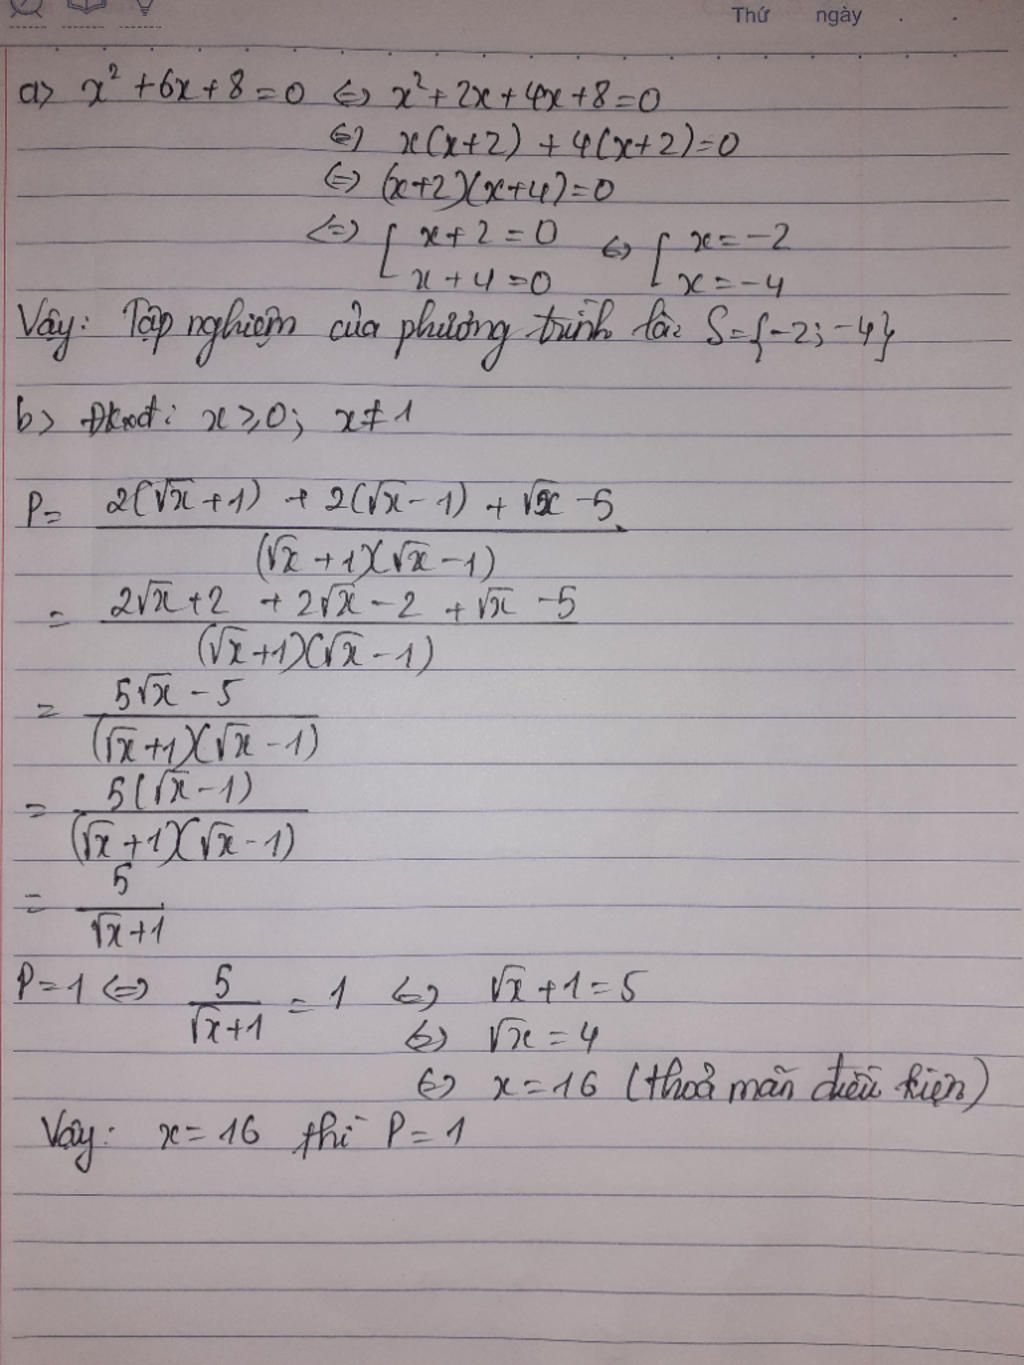 Thứ ngày . .
a> x² + 6x + 8 = 0 ⇔ x² + 2x + 4x + 8 = 0
⇔ x(x+2) + 4(x+2) = 0
⇔ (x+2)(x+4) = 0
⇔ [ x + 2 = 0 ⇔ [ x = -2
x + 4 = 0 x = -4
Vậy: Tập nghiệm của phương trình là: S = {-2; -4}
b> Đkxđ: x ≥ 0; x ≠ 1
P = 2(√x + 1) + 2(√x - 1) + √x - 5
(√x + 1)(√x - 1)
= 2√x + 2 + 2√x - 2 + √x - 5
(√x + 1)(√x - 1)
= 5√x - 5
(√x + 1)(√x - 1)
= 5(√x - 1)
(√x + 1)(√x - 1)
= 5
√x + 1
P = 1 ⇔ 5 / √x + 1 = 1 ⇔ √x + 1 = 5
⇔ √x = 4
⇔ x = 16 (thoả mãn điều kiện)
Vậy: x = 16 thì P = 1